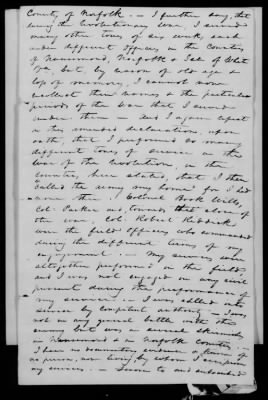 County of Norfolk. — I further say, that
during the Revolutionary War, I served
many other tours of six weeks, each
under different officers in the Counties
of Nansemond, Norfolk & Isle of Wight
but, by reason of old age &
loss of memory, I cannot now
recollect their names & the particular
periods of the War that I served
under them — and I again repeat
in this amended declaration, upon
oath, that I performed so many
different tours of service in the
War of the Revolution, in the
Counties, here stated, that I then
called the army my home for I had
none other — Colonel
Col. Parker and, towards the close of
the War, Col. Robert
were the field officers who commanded
during the different terms of my
engagement. — My services were
altogether performed in the field,
and I was not engaged in any civil
pursuit during the performance of
my service. — I was called into
service by competent authority — I was
not in any general battle with the
enemy but was in several skirmishes
in Nansemond & in Norfolk Counties. —
I have no documentary evidence & know of
no person, now living, by whom I can prove
my services. — Sworn to and subscribed